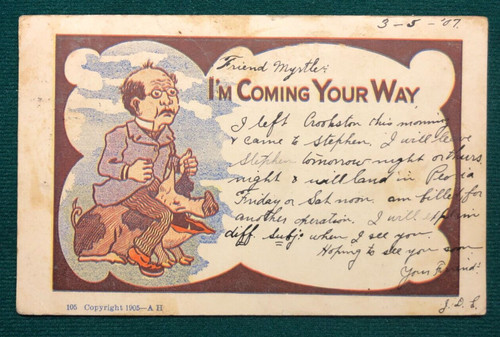 3-5-'07.
Friend Myrtle:
I'M COMING YOUR WAY
I left Crookston this morning
& came to Stephen. I will leave
Stephen tomorrow night or thurs
night & will land in Peoria
Friday or Sat noon. am billed for
another operation. I will
diff. subj. when I see you.
Hoping to see you soon
Your Friend:
J.D.E.
106 Copyright 1905-A H